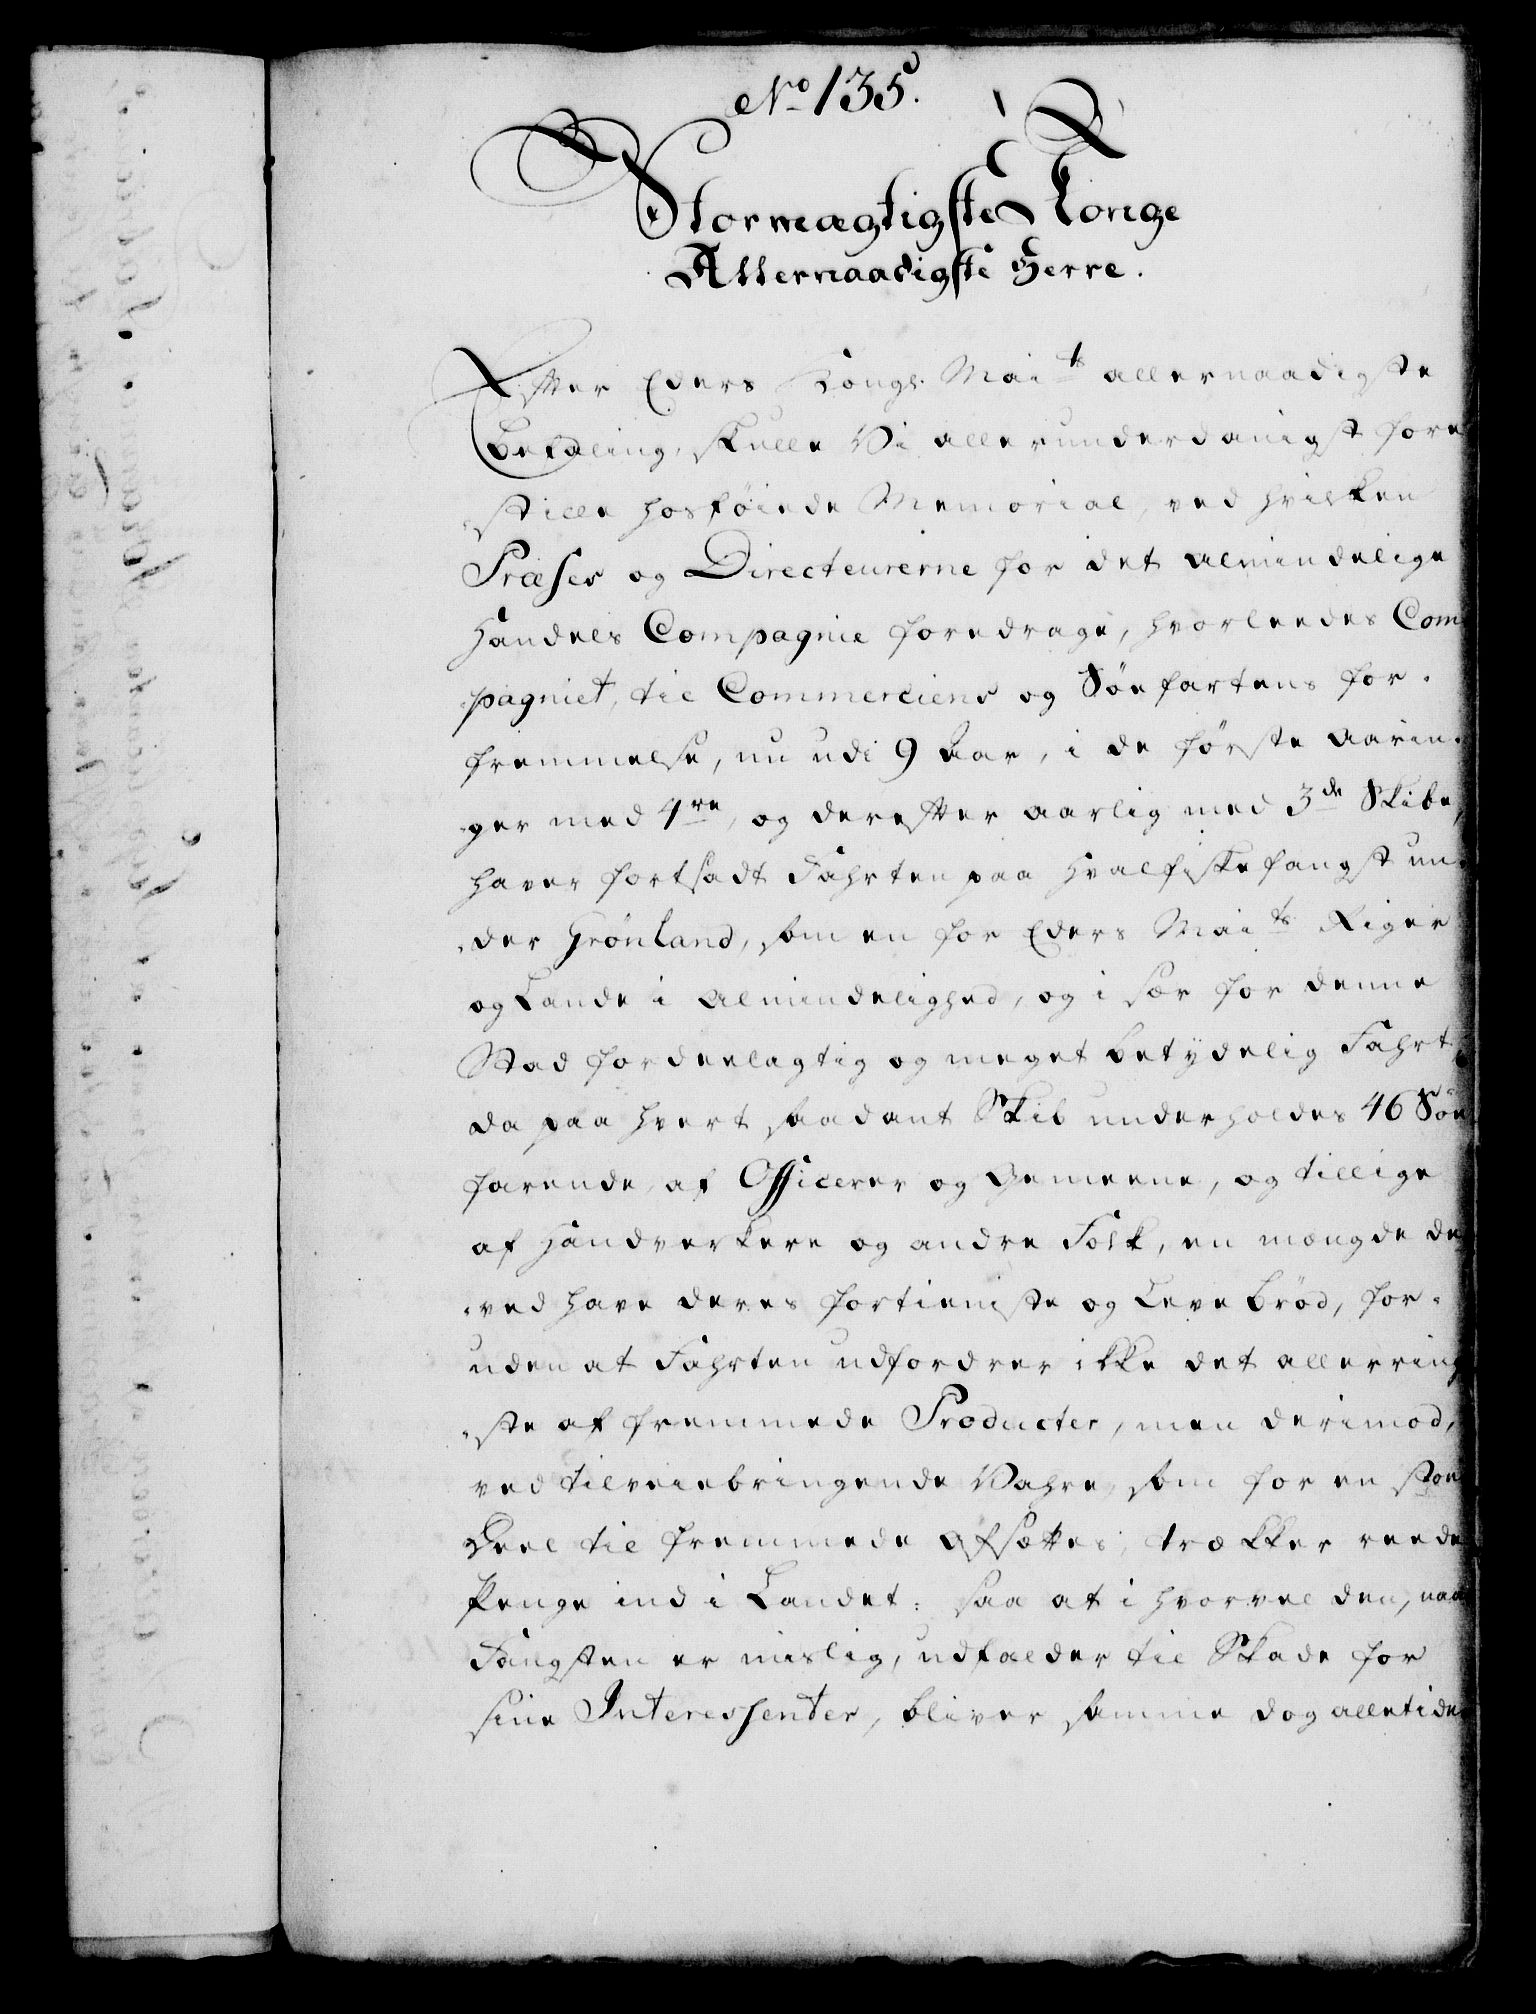 No 135.
Stormægtigste Konge
Allernaadigste Herre.
Efter Eders Kongl. Maits allernaadigste
Befaling, skulle Vi allerunderdanigst fore
stille hosføiede Memorial, ved hvilken
Præses og Directeurerne for det almindelige
Handels Compagnie foredrage, hvorleedes Com
pagniet, til Commerciens og Søefartens for-
fremmelse, nu udi 9 Aar, i de første Aarin-
ger med 4re, og derefter aarlig med 3de Skibe,
haver fortsadt Fahrten paa Hvalfiskefangst un-
der Grønland, som en for Eders Maits Riger
og Lande i Almindelighed, og i sær for denne
Stad fordeelagtig og meget betydelig Fahrt,
da paa hvert saadant Skib underholdes 46 Søe
farende, af Officerer og Gemeene, og tillige
af Handverkere og andre Folk, en mængde der
ved have deres fortieniste og Levebrød, for-
uden at Fahrten udfordrer ikke det allerring
ste af fremmede Producter, men derimod,
ved tilveiebringende Vahre, som for en stor
Deel til fremmede afsættes, trækker reede
Penge ind i Landet: saa at i hvorvel den, naar
Fangsten er mislig, udfalder til Skade for
sine Interessenter, bliver samme dog alletider